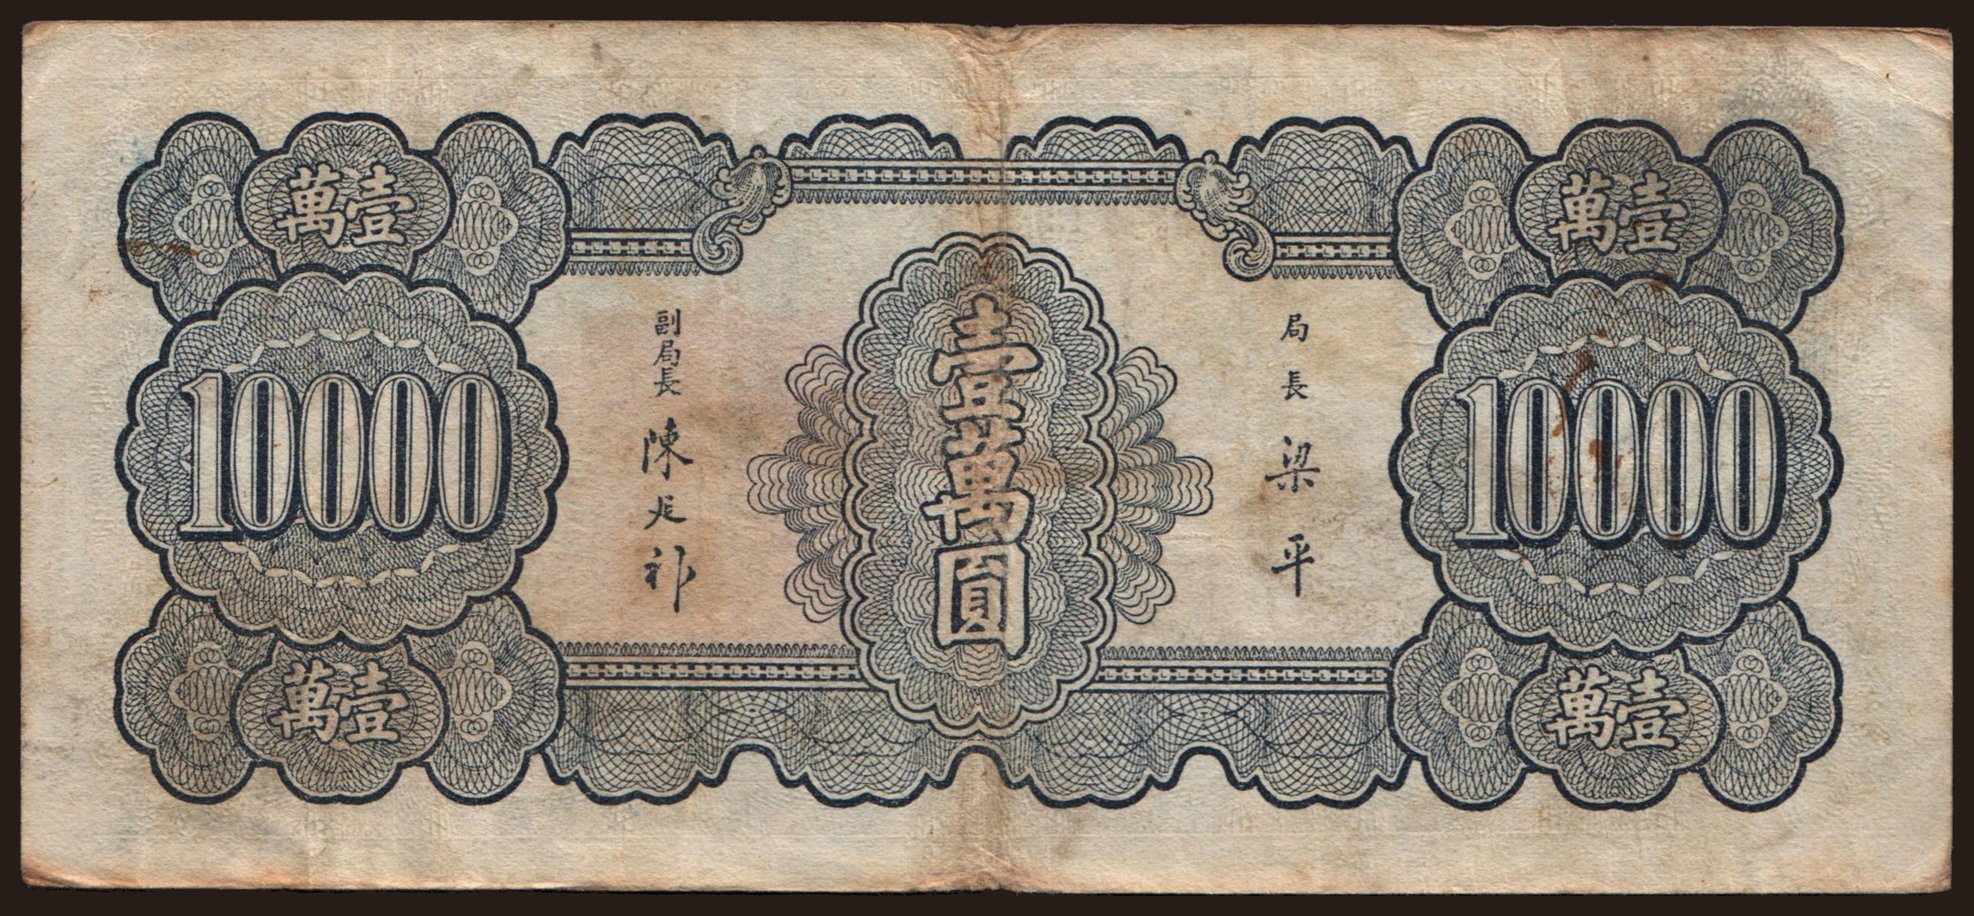 壹萬
壹萬
10000
10000
局長 梁平
壹萬圓
副局長 陳
壹萬
壹萬